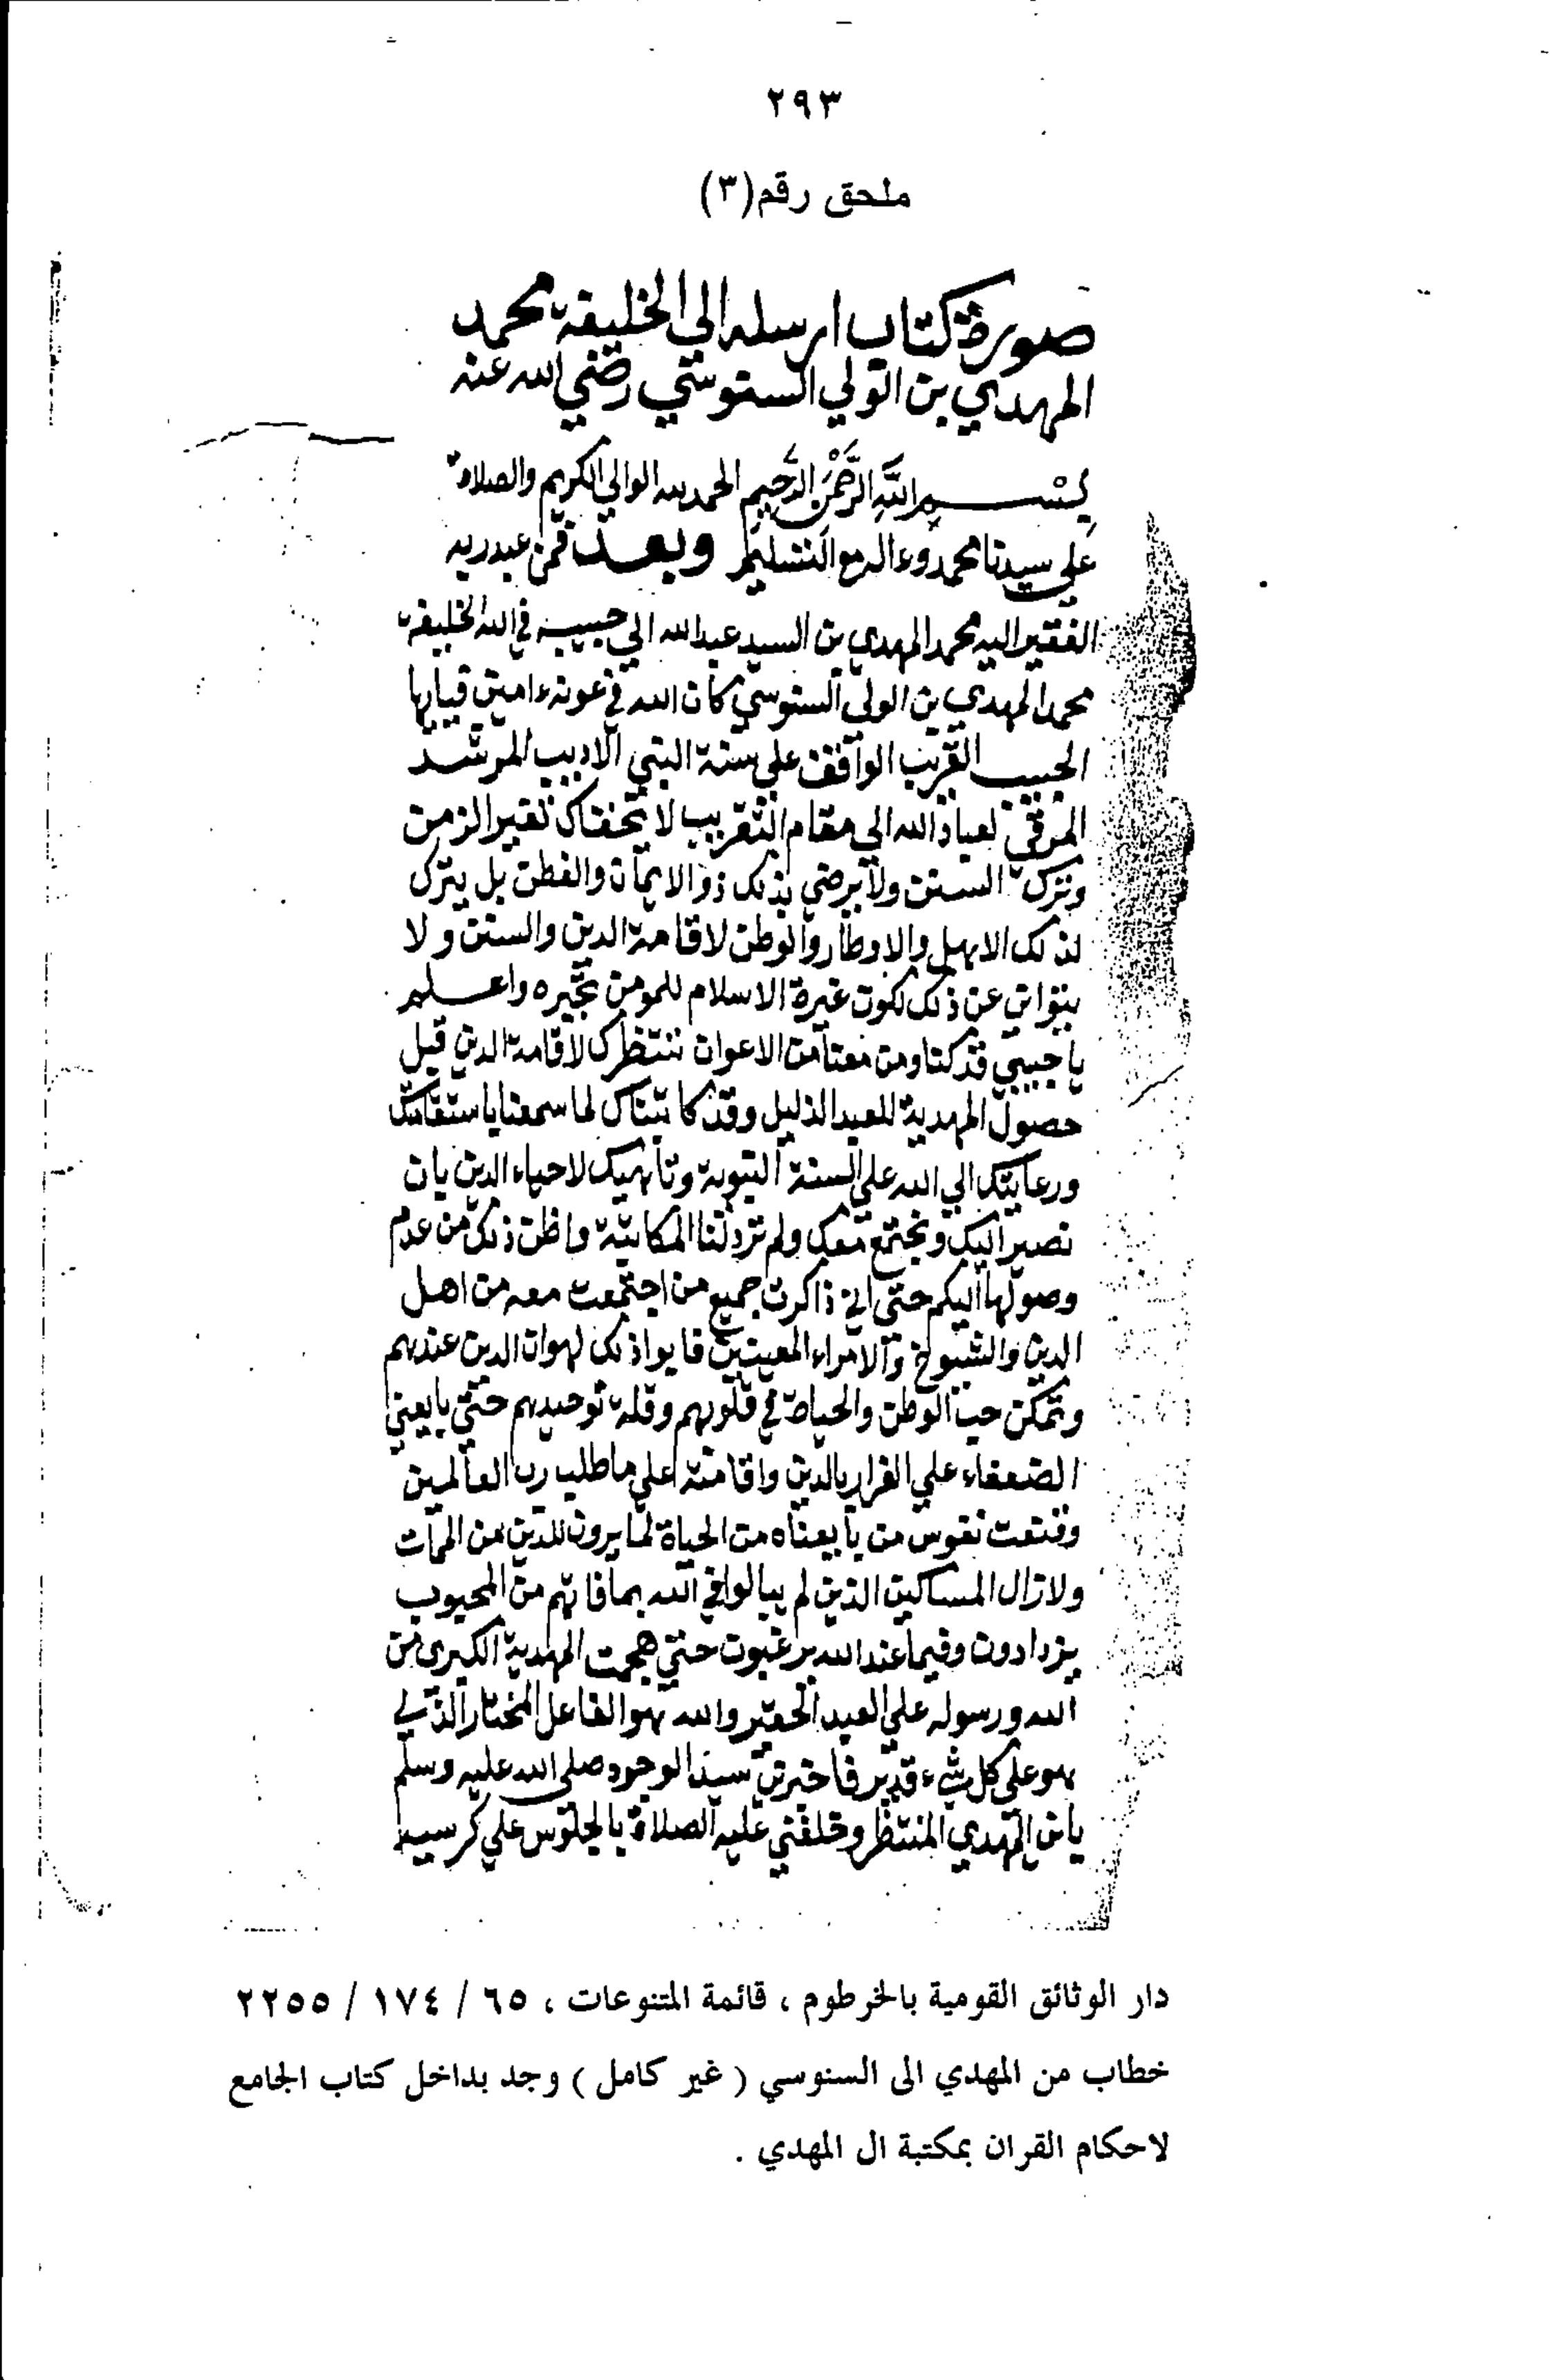 ٢٩٣
ملحق رقم(٣)
صورة كتاب ارسله الي الخليفة محمد
المهدي بن الولي السنوسي رضي الله عنه
بسم الله الرحمن الرحيم الحمد لله الوالي الكريم والصلاة
علي سيدنا محمد وءاله مع التسليم وبعد فمن عبد ربه
الفقير اليه محمد المهدي بن السيد عبد الله الي حبيبه في الله الخليفة
محمد المهدي بن الولي السنوسي كان الله في عونه ءامين فيايها
الحبيب القريب الواقف علي سنة النبي الاديب المرشد
المرقي لعباد الله الي مقام التقريب لا يخفاك تغير الزمن
وترك السنن ولا يرضي بذلك ذو الايمان والفطن بل يترك
لذلك الاهل والاوطار والوطن لاقامة الدين والسنن ولا
يتواني عن ذلك لكون غيرة الاسلام للمومن تجبره واعلم
يا حبيبي قد كنا ومن معنا من الاعوان ننتظرك لاقامة الدين قبل
حصول المهدية للعبد الذليل وقد كاتبناك لما سمعنا باستقامتك
ورعايتك الي الله علي السنة النبوية وتاهبك لاحياء الدين بان
نصير اليك ونجتمع معك ولم ترد لنا المكاتبة واظن ذلك من عدم
وصولها اليكم حتي اني ذاكرت جميع من اجتمعت معه من اهل
الدين والشيوخ والامراء المعينين فابوا ذلك لهوان الدين عندهم
وتمكن حب الوطن والحياة في قلوبهم وقلة توحيدهم حتي بايعني
الضعفاء علي الفرار بالدين واقامته علي ما طلب رب العالمين
وقنعت نفوس من بايعناه من الحياة لما يرون للدين من الممات
ولا زال المساكين الذين لم يبالوا في الله بما فاتهم من المحبوب
يزدادون وفيما عند الله يرغبون حتي هجمت المهدية الكبرى من
الله ورسوله علي العبد الحقير والله هو الفاعل المختار الذي
هو علي كل شيء قدير فاخبرني سيد الوجود صلى الله عليه وسلم
باني المهدي المنتظر وخلفني عليه الصلاة بالجلوس علي كرسيه
دار الوثائق القومية بالخرطوم ، قائمة المتنوعات ، ٦٥ / ١٧٤ / ٢٢٥٥
خطاب من المهدي الى السنوسي ( غير كامل ) وجد بداخل كتاب الجامع
لاحكام القران بمكتبة ال المهدي .